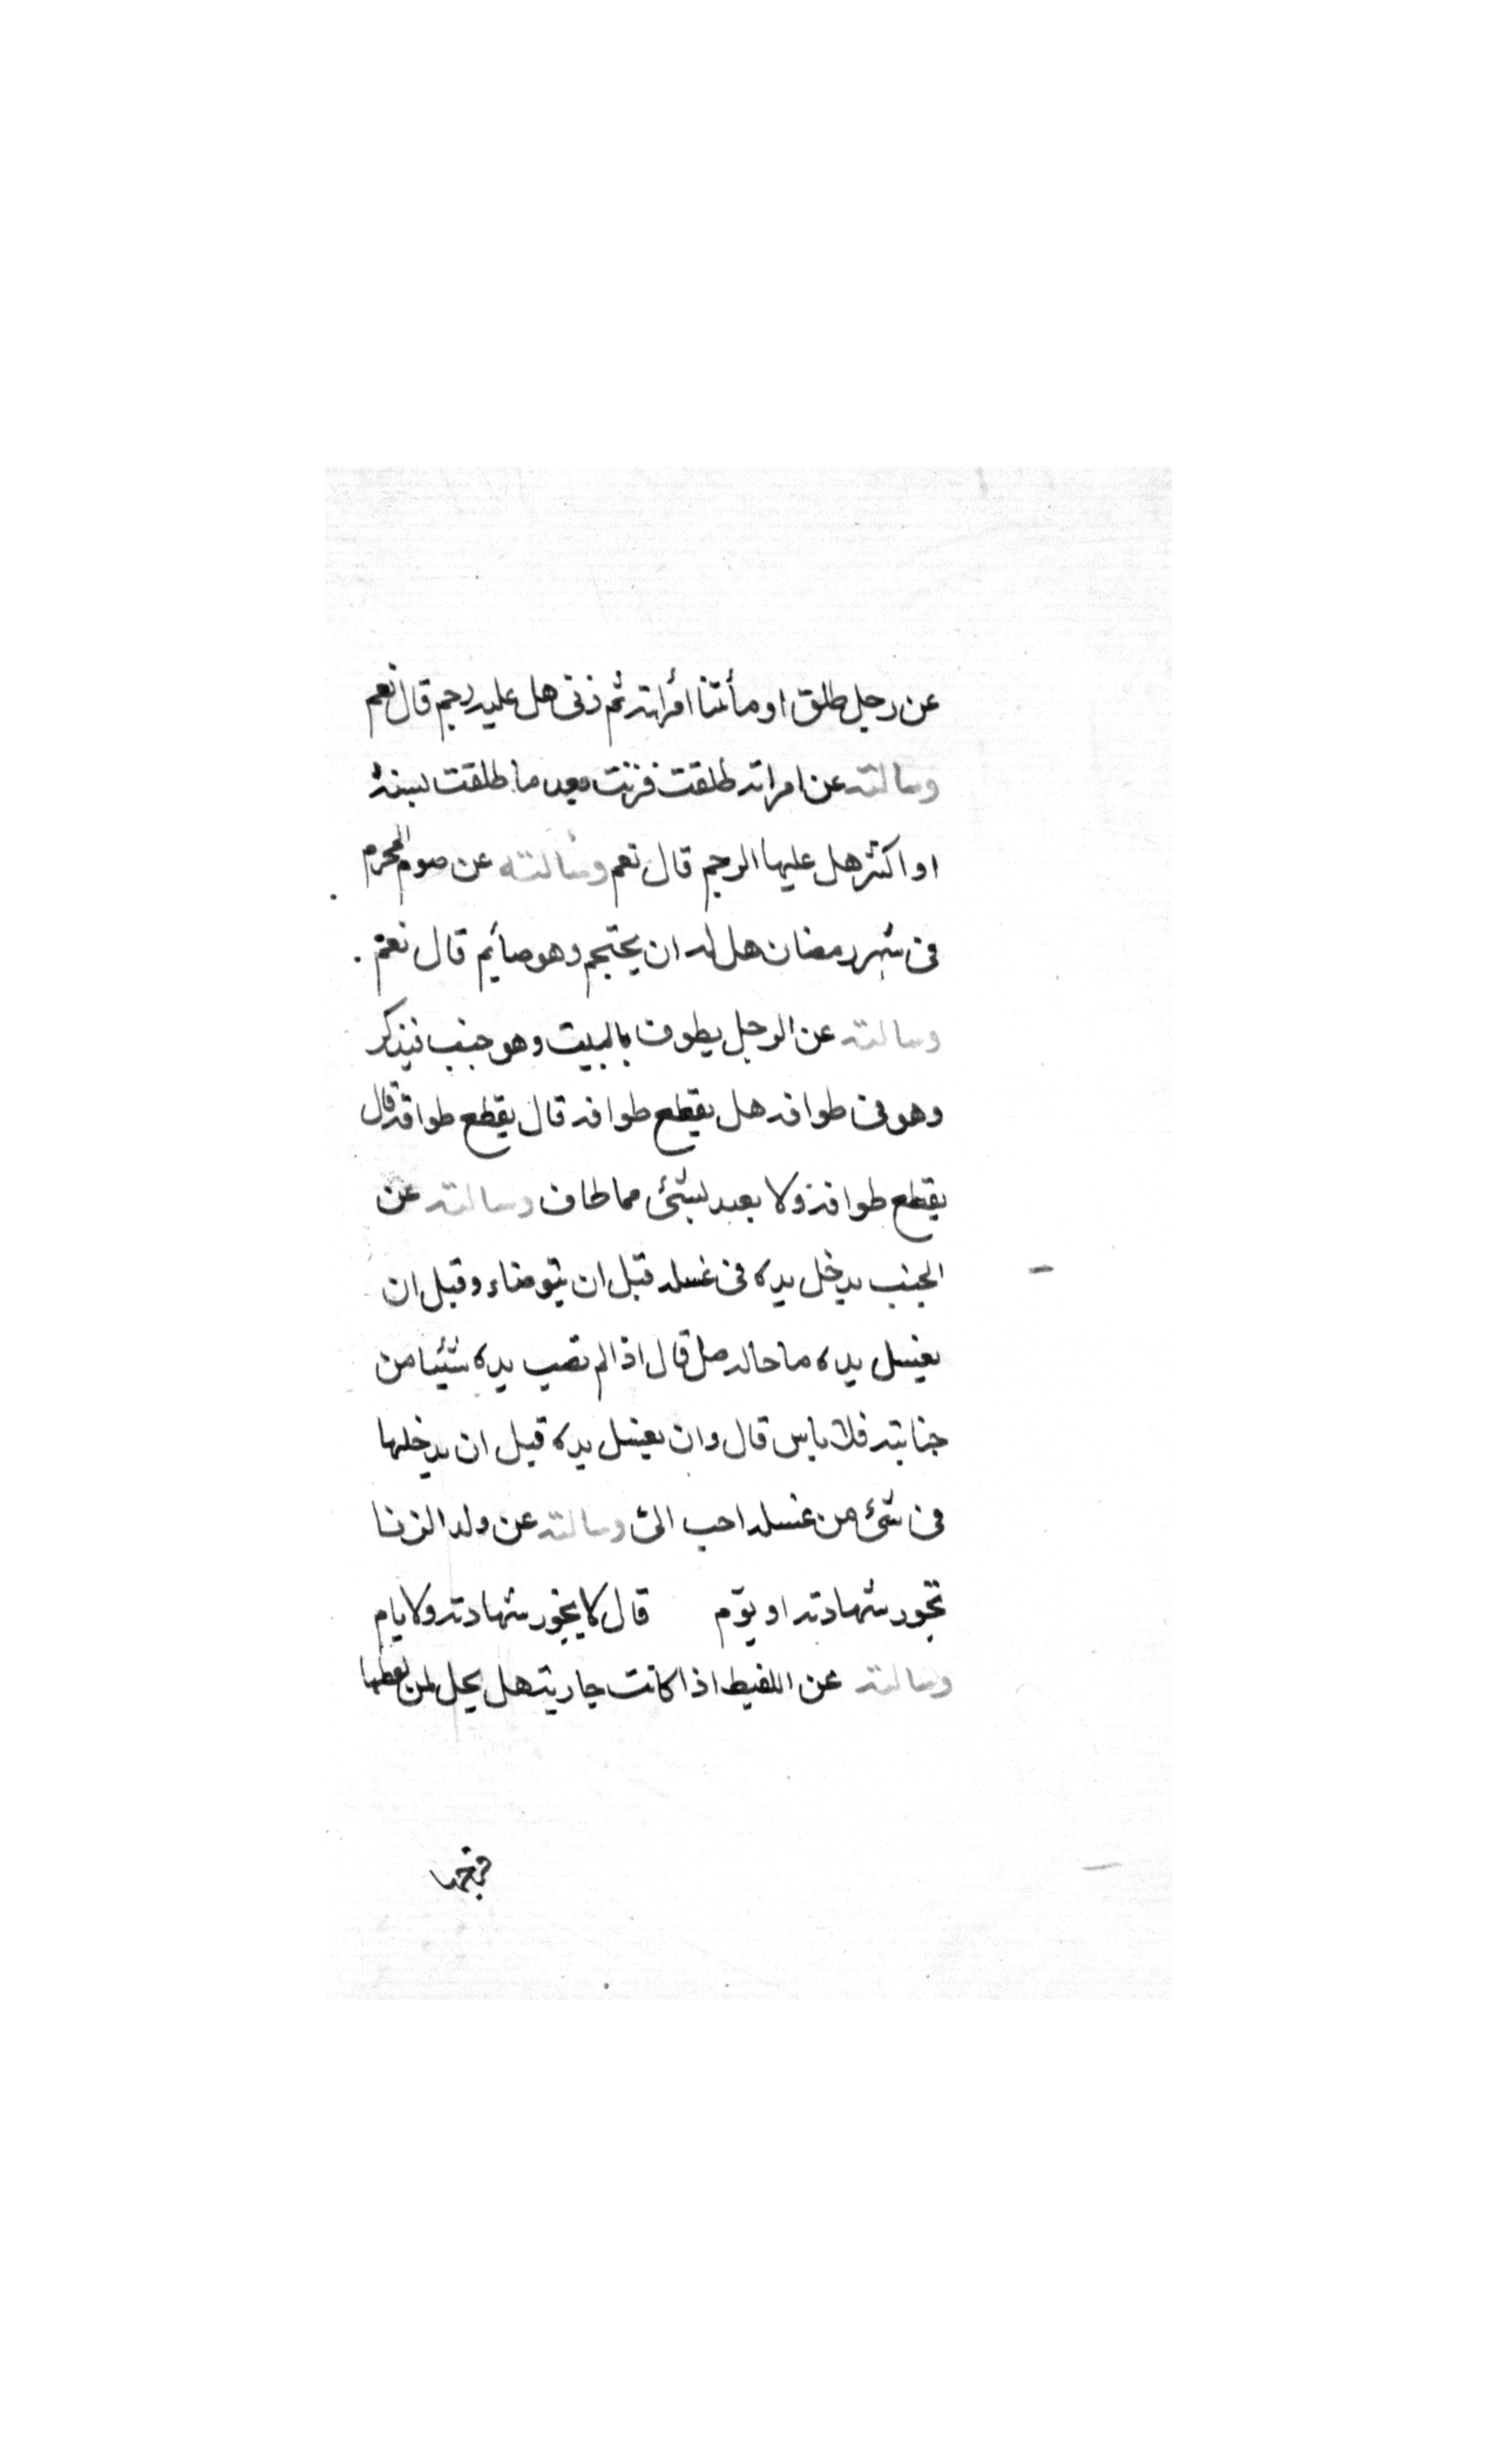 عن رجل طلق او ماتت امرأته ثم زنى هل عليه رجم قال نعم
وسالته عن امراته طلقت فزنت بعد ما طلقت بسنة
او اكثر هل عليها الرجم قال نعم وسألته عن صوم المحرم
فى شهر رمضان هل له ان يحتجم وهو صائم قال نعم
وسالته عن الرجل يطوف بالبيت وهو جنب فيذكر
وهو فى طوافه هل يقطع طوافه قال يقطع طوافه قال
يقطع طوافه ولا يعيد بشئ مما طاف وسالته عن
الجنب يدخل يده فى غسله قبل ان يتوضاء وقبل ان
يغسل يده ما حاله قال اذا لم تصب يده شيئا من
جنابته فلا باس قال وان يغسل يده قبل ان يدخلها
فى شئ من غسله احب الىّ وسالته عن ولد الزنا
تجوز شهادته او يؤم قال لا يجوز شهادته ولا يام
وسالته عن اللقيط اذا كانت جارية هل يحل لمن